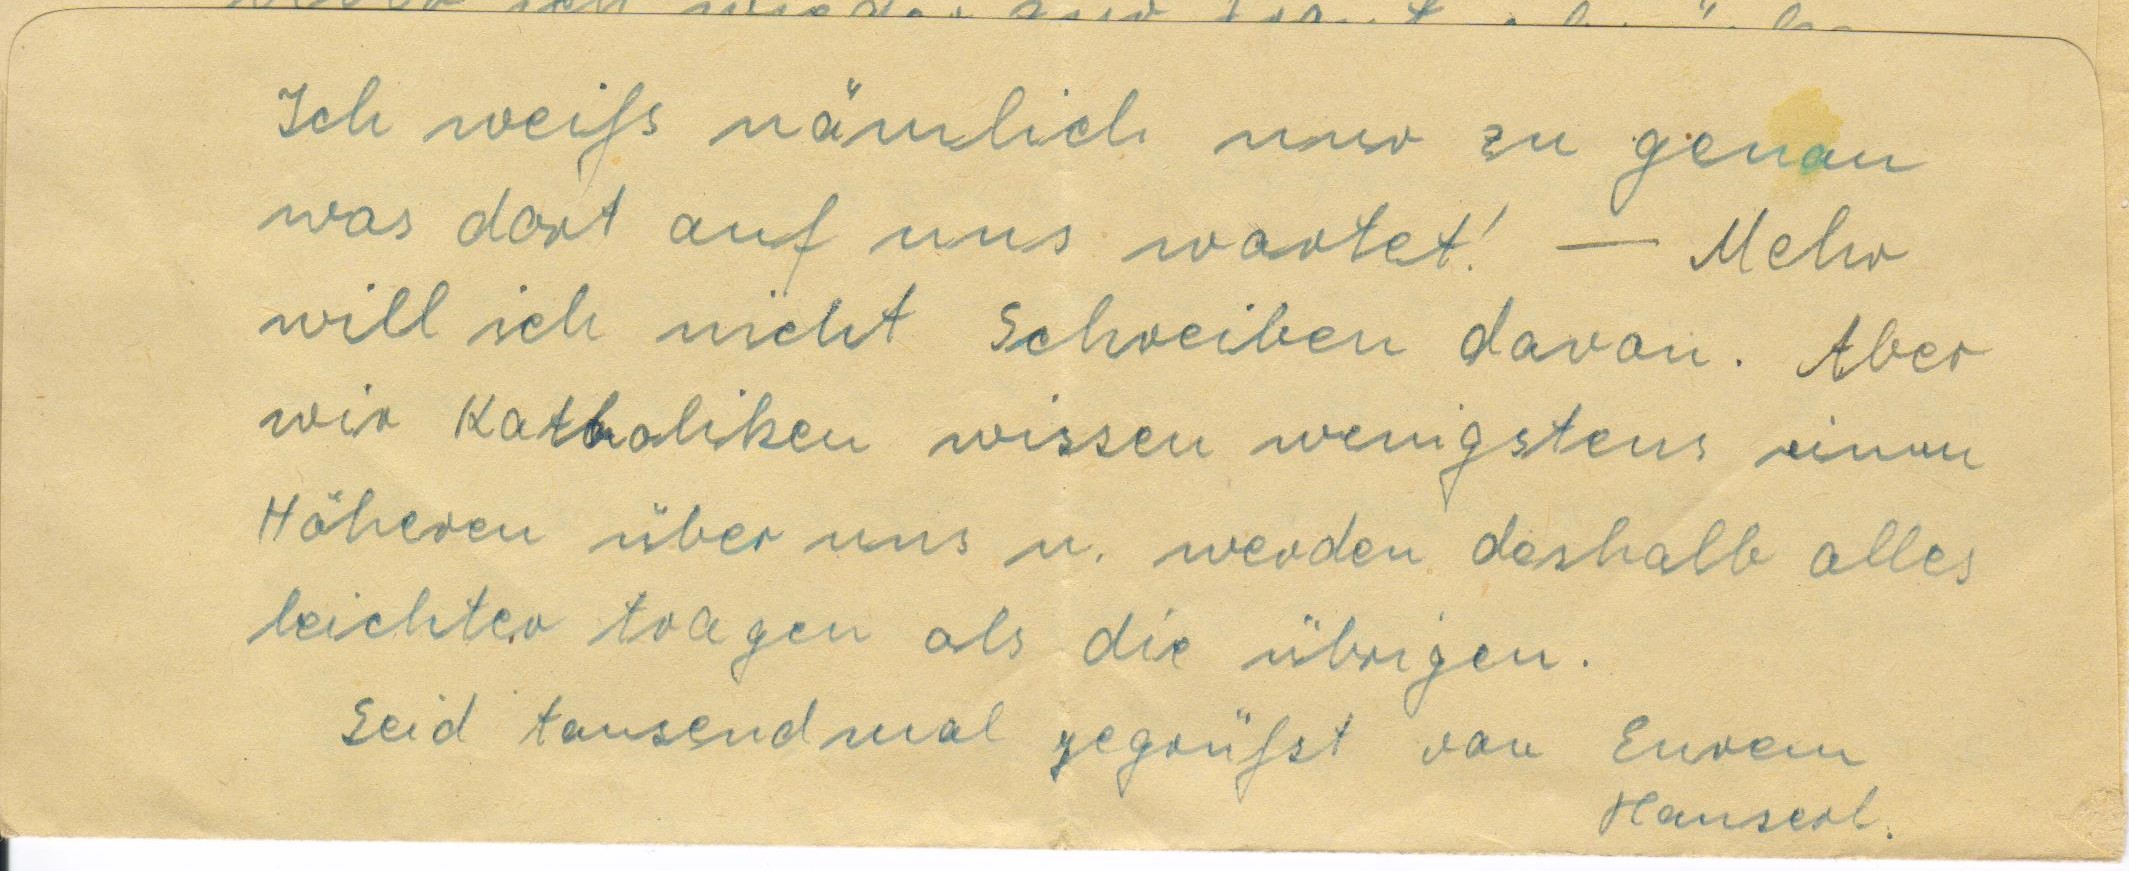 Ich weiß nämlich nur zu genau
was dort auf uns wartet! — Mehr
will ich nicht Schreiben davon. Aber
wir Katholiken wissen wenigstens einen
Höheren über uns u. werden deshalb alles
leichter tragen als die übrigen.
Seid tausendmal gegrüßt von Eurem
Hanserl.